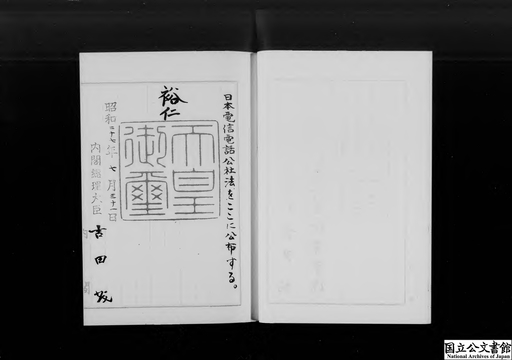 日本電信電話公社法をここに公布する。
裕仁
天皇
御璽
昭和二十七年七月三十一日
内閣総理大臣
吉田茂
国立公文書館
National Archives of Japan